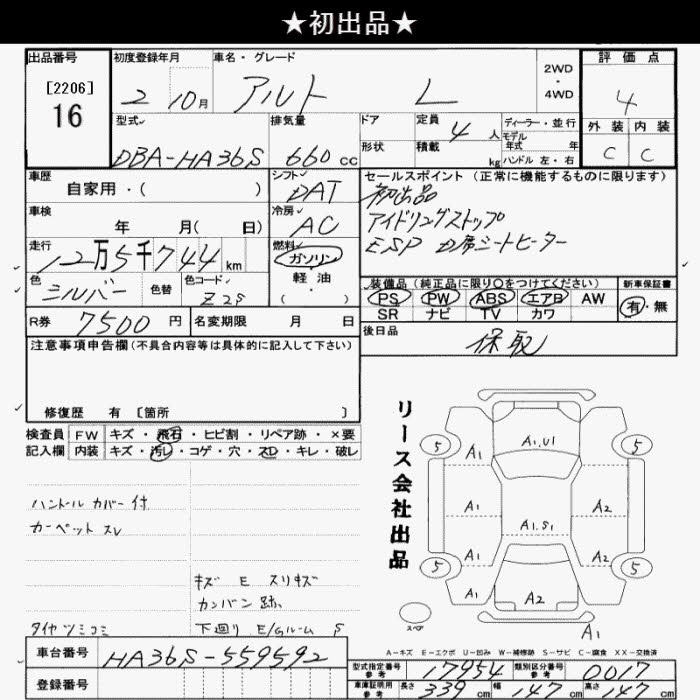 ★初出品★
出品番号
[2206]
16
初度登録年月
2 10月
車名・グレード
アルト L
2WD
・
4WD
評価点
4
外装 内装
C C
型式
DBA-HA36S
排気量
660 cc
ドア
形状
定員
4人
積載
kg
ディーラー・並行
モデル
年式 年
ハンドル 左・右
車歴
自家用・( )
シフト
DAT
セールスポイント (正常に機能するものに限ります)
初出品
アイドリングストップ
ESP D席シートヒーター
車検
年 月( 日)
冷房
AC
走行
12万5千744km
燃料
ガソリン
軽油
・( )
色
シルバー
色替
色コード
Z2S
装備品(純正品に限り○をつけてください)
PS PW ABS エアB AW
SR ナビ TV カワ
新車保証書
有・無
R券
7500円
名変期限 月 日
後日品
保取
注意事項申告欄(不具合内容等は具体的に記入して下さい)
修復歴 有 [箇所 ]
検査員
記入欄
FW キズ・飛石・ヒビ割・リペア跡・×要
内装 キズ・汚レ・コゲ・穴・スレ・キレ・破レ
ハンドルカバー付
カーペット スレ
キズ E スリキズ
カンバン跡
タイヤツミコミ
下廻り E/Gルーム S
リース会社出品
A1.U1
5 A1 5
A1 A1.S1 A2
5 A1 A2 5
A1 A2 A2
スペア
A1
A-キズ E-エクボ U-凹み W-補修跡 S-サビ C-腐食 XX-交換済
車台番号
HA36S-559592
登録番号
型式指定番号
参考
17954
類別区分番号
参考
0017
車庫証明用
参考
長さ 339cm 幅 147cm 高さ 147cm